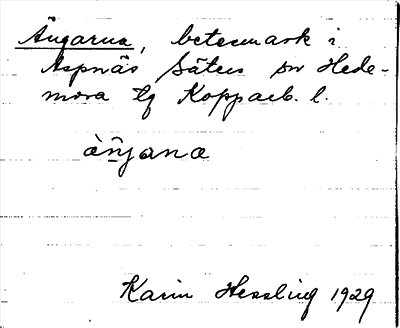 Ängarna, betesmark i
Aspnäs Säters sn Hede-
mora tg Kopparb. l.
àŋ̀ana
Karin Hessling 1929